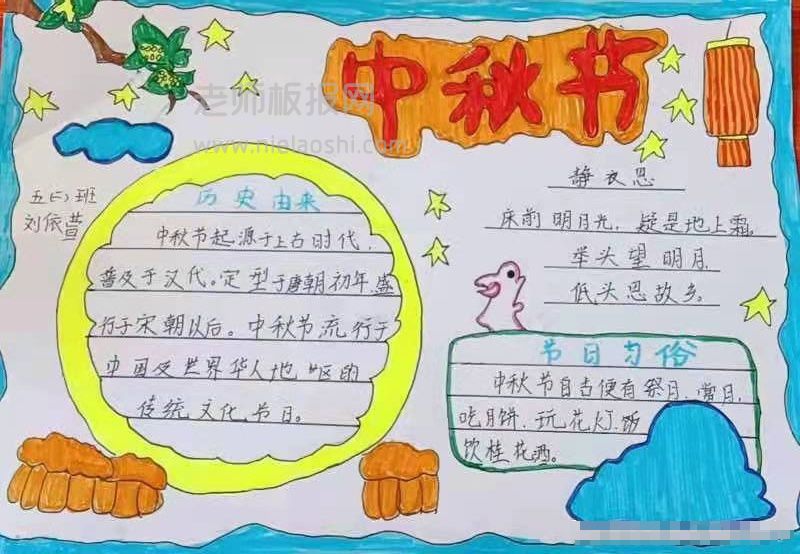 中秋节
老师板报网
www.nielaoshi.com
五(二)班
刘依萱
历史由来
中秋节起源于上古时代,
普及于汉代。定型于唐朝初年,盛
行于宋朝以后。中秋节流行于
中国及世界华人地区的
传统文化节日。
静衣思
床前明月光,疑是地上霜。
举头望明月,
低头思故乡。
节日习俗
中秋节自古便有祭月、赏月、
吃月饼、玩花灯、饭
饮桂花酒。